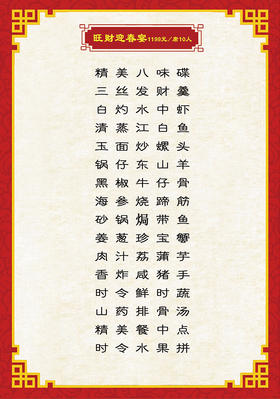 旺财迎春宴1199元/席10人
精美八味碟
三丝发财羹
白灼水中虾
清蒸江白鱼
玉面炒螺头
锅仔东山羊
黑椒牛仔骨
海參烧蹄筋
砂锅焗带鱼
姜葱珍宝蟹
肉汁荔蒲芋
香炸咸猪手
时令鲜时蔬
山药排骨汤
精美餐中点
时令水果拼